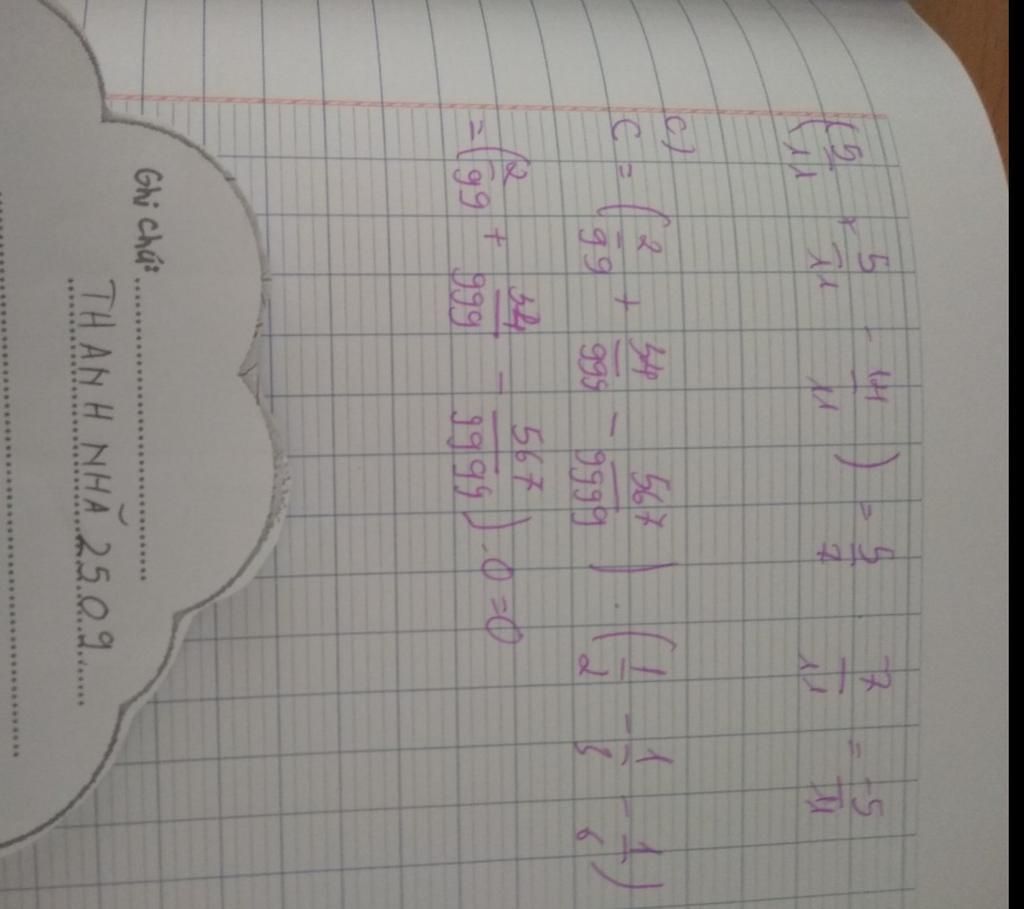 (5/11 + 5/11 - 14/11) = 5/7 · 7/11 = -5/11
c)
C = (2/99 + 34/999 - 567/9999) · (1/2 - 1/3 - 1/6)
= (2/99 + 34/999 - 567/9999) · 0 = 0
Ghi chú:
THANH NHÃ 25.09